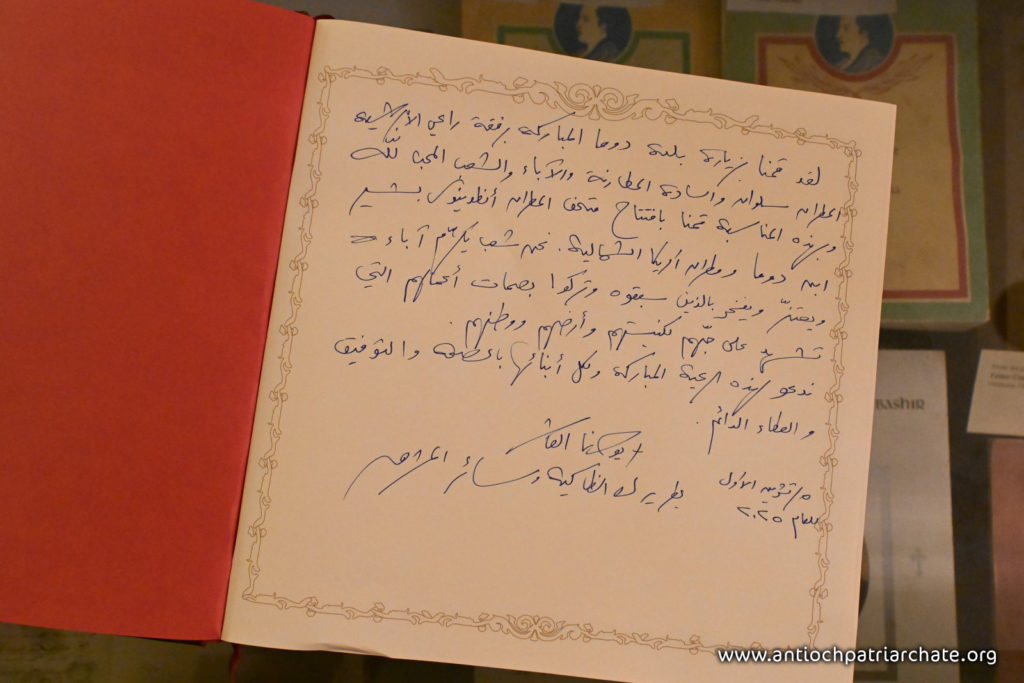 لقد قمنا بزيارة بلدة دوما المباركة برفقة راعي الأبرشية
المطران سلوان والسادة المطارنة والآباء والشعب المحب لله
وبهذه المناسبة قمنا بافتتاح متحف المطران أنطونيوس بشير
ابن دوما ومطران أمريكا الشمالية. نحن شعب يكرّم آباءه
ويعتزّ ويفخر بالذين سبقوه وتركوا بصمات أعمالهم التي
تشهد على حبّهم لكنيستهم وأرضهم ووطنهم.
ندعو لهذه الرعية المباركة وكل أبنائها بالصحة والتوفيق
والعطاء الدائم.
+ يوحنا العاشر
بطريرك انطاكية وسائر المشرق
٥ تشرين الاول
للعام ٢٠٢٥
BASHIR
www.antiochpatriarchate.org